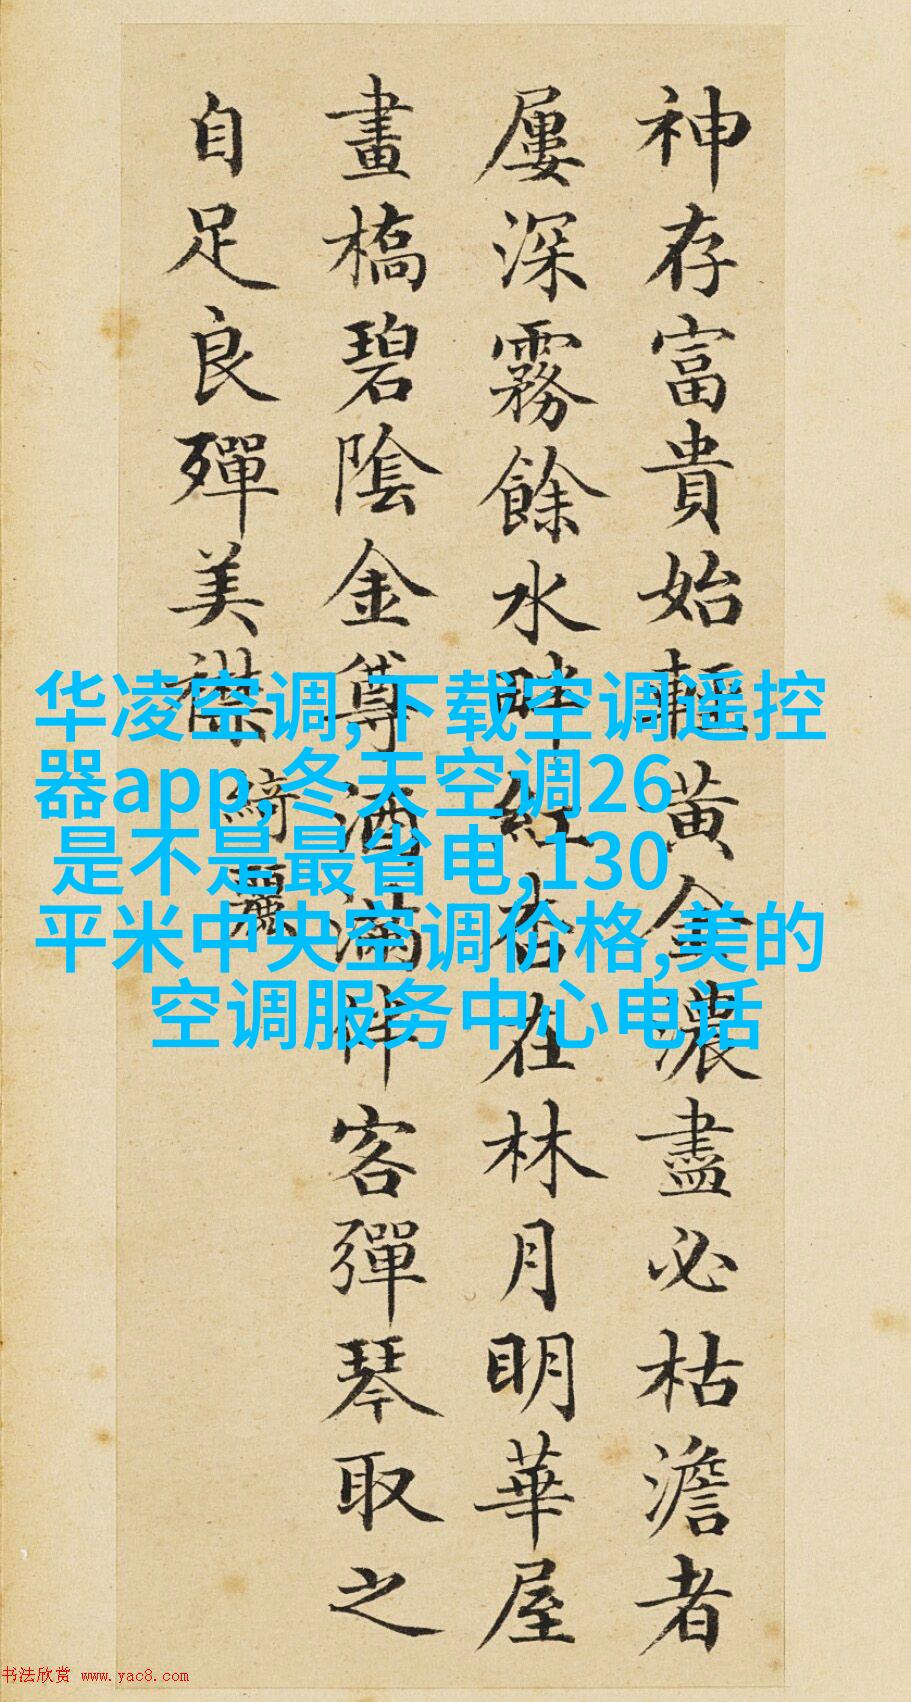 神存富貴始輕黃金濃盡必枯澹者
屢深霧餘水畔紅杏在林月明華屋
畫橋碧陰金尊酒滿伴客彈琴取之
自足良殫美襟
綺麗
华凌空调,下载空调遥控
器app,冬天空调26
是不是最省电,130
平米中央空调价格,美的
空调服务中心电话
书法欣赏 www.yac8.com